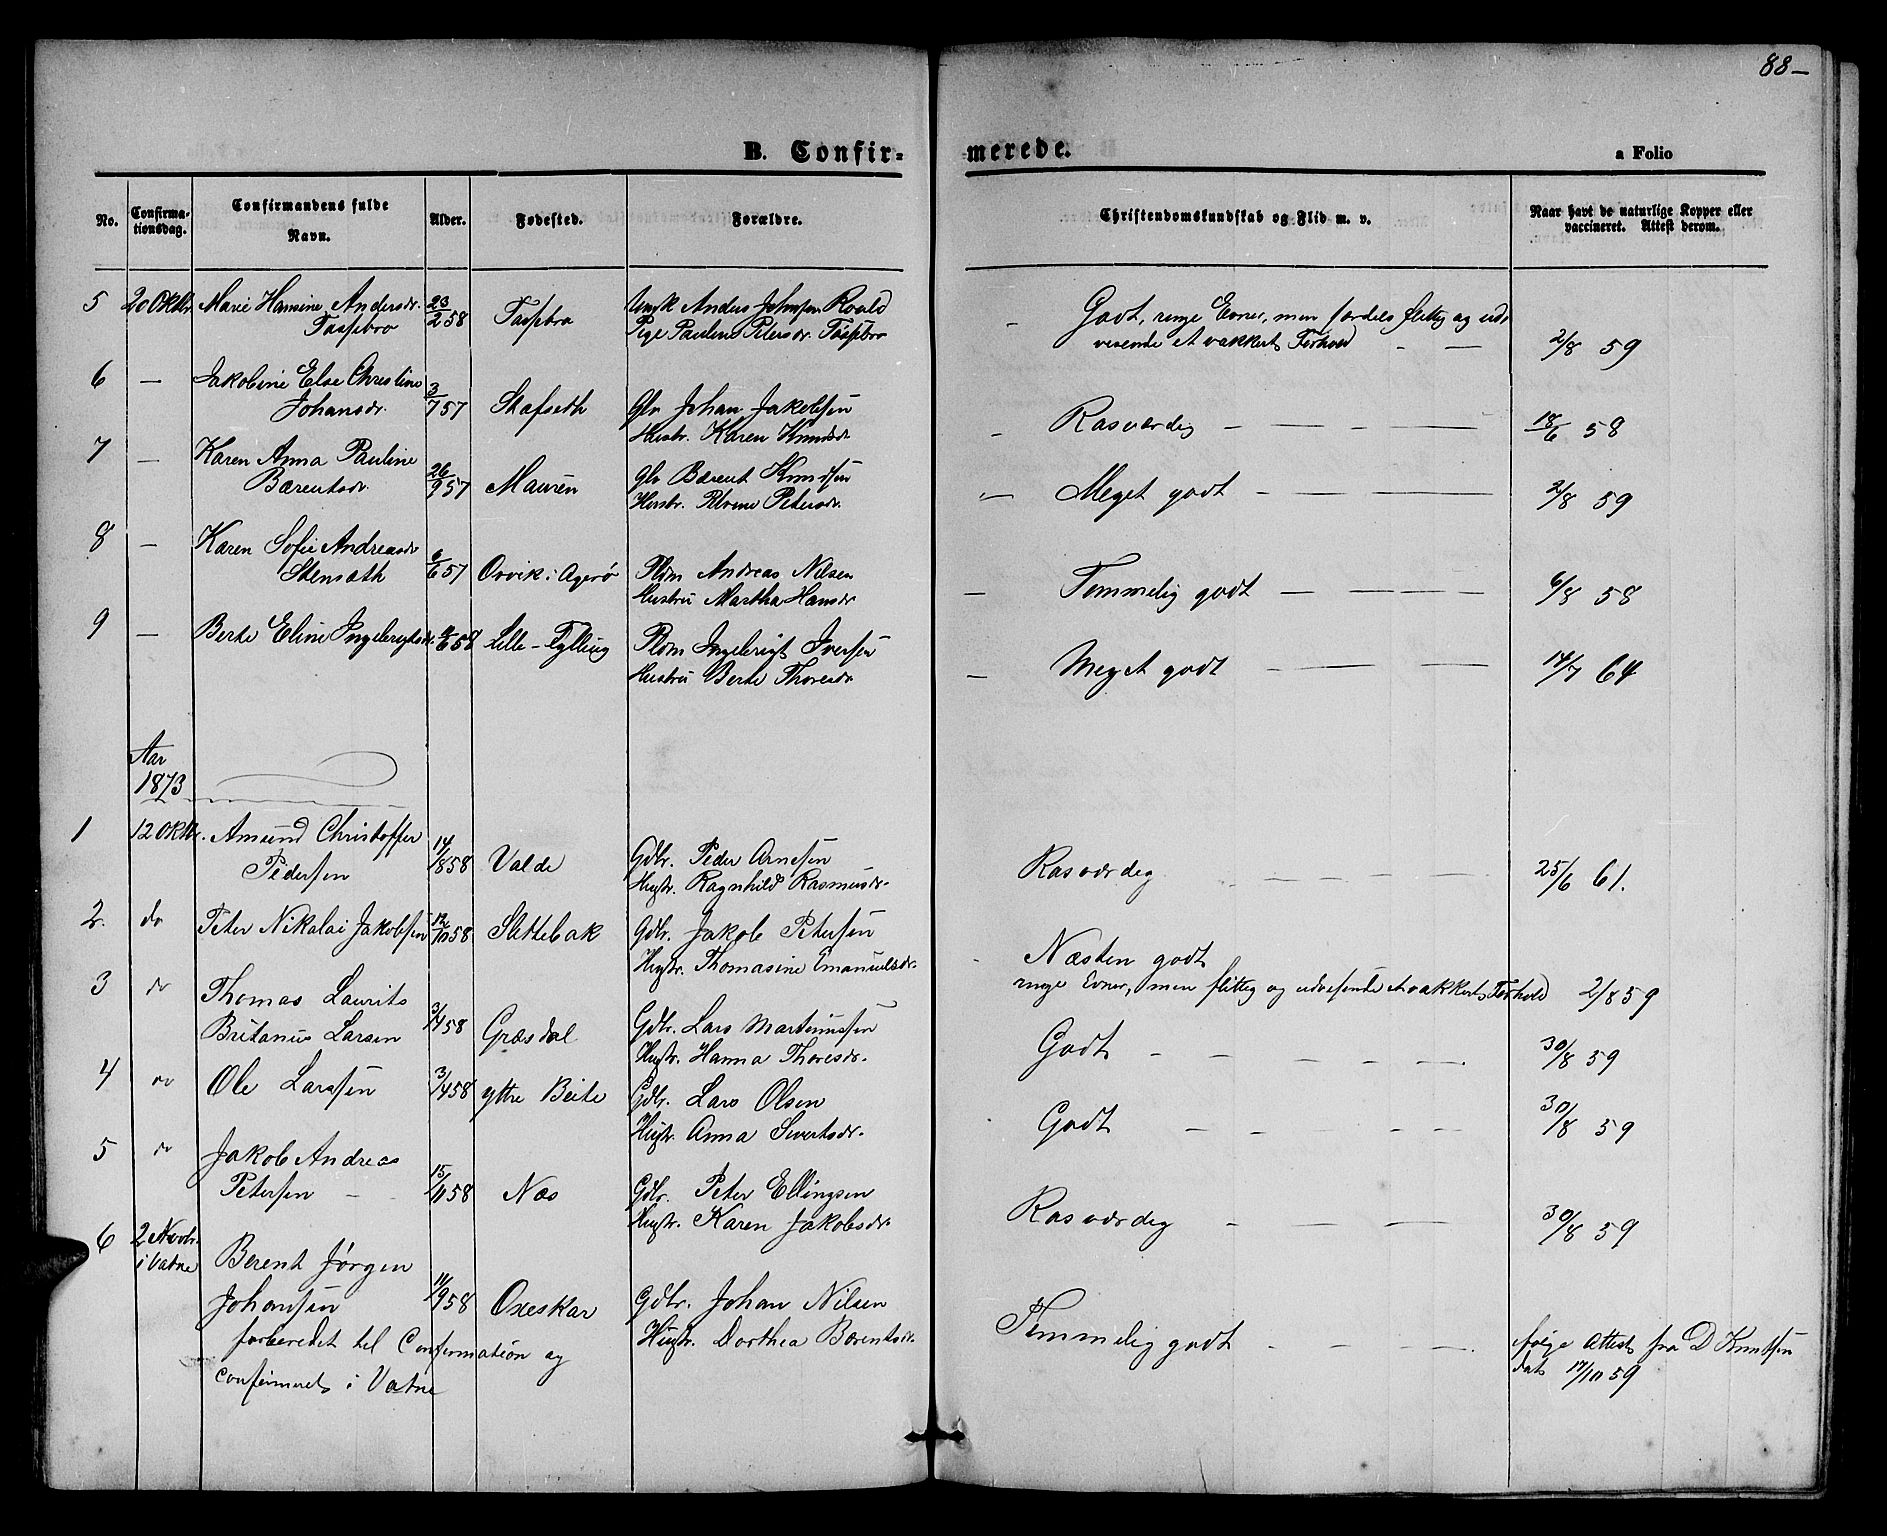 88-
B. Confir-
merede.
a Folio
No.
Confirma-
tionsdag.
Confirmandens fulde
Navn.
Alder.
Fødested.
Forældre.
Christendomskundskab og Flid m. v.
Naar havt de naturlige Kopper eller
vaccineret. Attest derom.
5 20 Oktbr. Marie Hansine Andersdr. 23/2 58 Anders Johnsen Roald
Pige Pauline Petersdr.
- Godt, ringe Evner, men særdeles flittig og ud-
visende et vakkert Forhold - — 2/8 59
6 — Jakobine Else Christine
Johansdr. 3/7 57 Stafseth Johan Jakobsen
Hustr. Karen Knudsdr
- Rosværdig - — - — — — 18/6 58
7 — Karen Anna Pauline
Bærentsdr. 26/9 57 Mauren Bærent Knudsen
Hustr. Petersdr.
— Meget godt - — - — — — 2/8 59
8 — Karen Sofie Andreasdr
6/6 57 Orvik i Agerø Pldm Andreas Nilsen
Hustru Martha Hansdr
— Temmelig godt — - — — — 6/8 58
9 — Berte Eline Ingebrigtsdr. 58 Lille-Tylling Pldm Ingebrigt Iversen
Hustru Berte Thoresdr
— Meget godt - — — — 14/7 64
Aar
1873
1 12 Oktbr. Amund Christoffer
Pedersen 14/8 58 Valde Gdbr. Peder Arnesen
Hustr. Ragnhild Rasmusdr.
Rosværdig - — — — — 25/6 61.
2. do Peter Nikolai Jakobsen 12/10 58 Slettebak Gdbr. Jakob Petersen
Hustr. Thomasine Emanuelsdr.
Næsten godt
ringe Evner, men flittig og udvisende et vakkert Forhold 2/8 59
3 do Thomas Laurits
Britanus Larsen 3/4 58 Græsdal Gdbr. Lars Martinussen
Hustr. Hanna Thoresdr.
Godt - - — — — — 30/8 59
4 do Ole Larssen 3/4 58 yttre Beite Gdbr. Lars Olsen
Hustr. Anna Sivertsdr.
Godt — - — — — 30/8 59
5 do Jakob Andreas
Petersen - - 15/11 58 Næs Gdbr. Peter Ellingsen
Hustr. Karen Jakobsdr.
Rosværdig - — — — 30/8 59
6 2 Novbr.
i Vatne Berent Jørgen
Johansen 11/9 58 Oxeskar Gdbr. Johan Nilsen
Hustr. Dorthea Bærentsdr.
forberedet til Confirmation og
confirmeret i Vatne
Temmelig godt - — - — — følge Attest fra D Knutsen
dat. 17/10 59